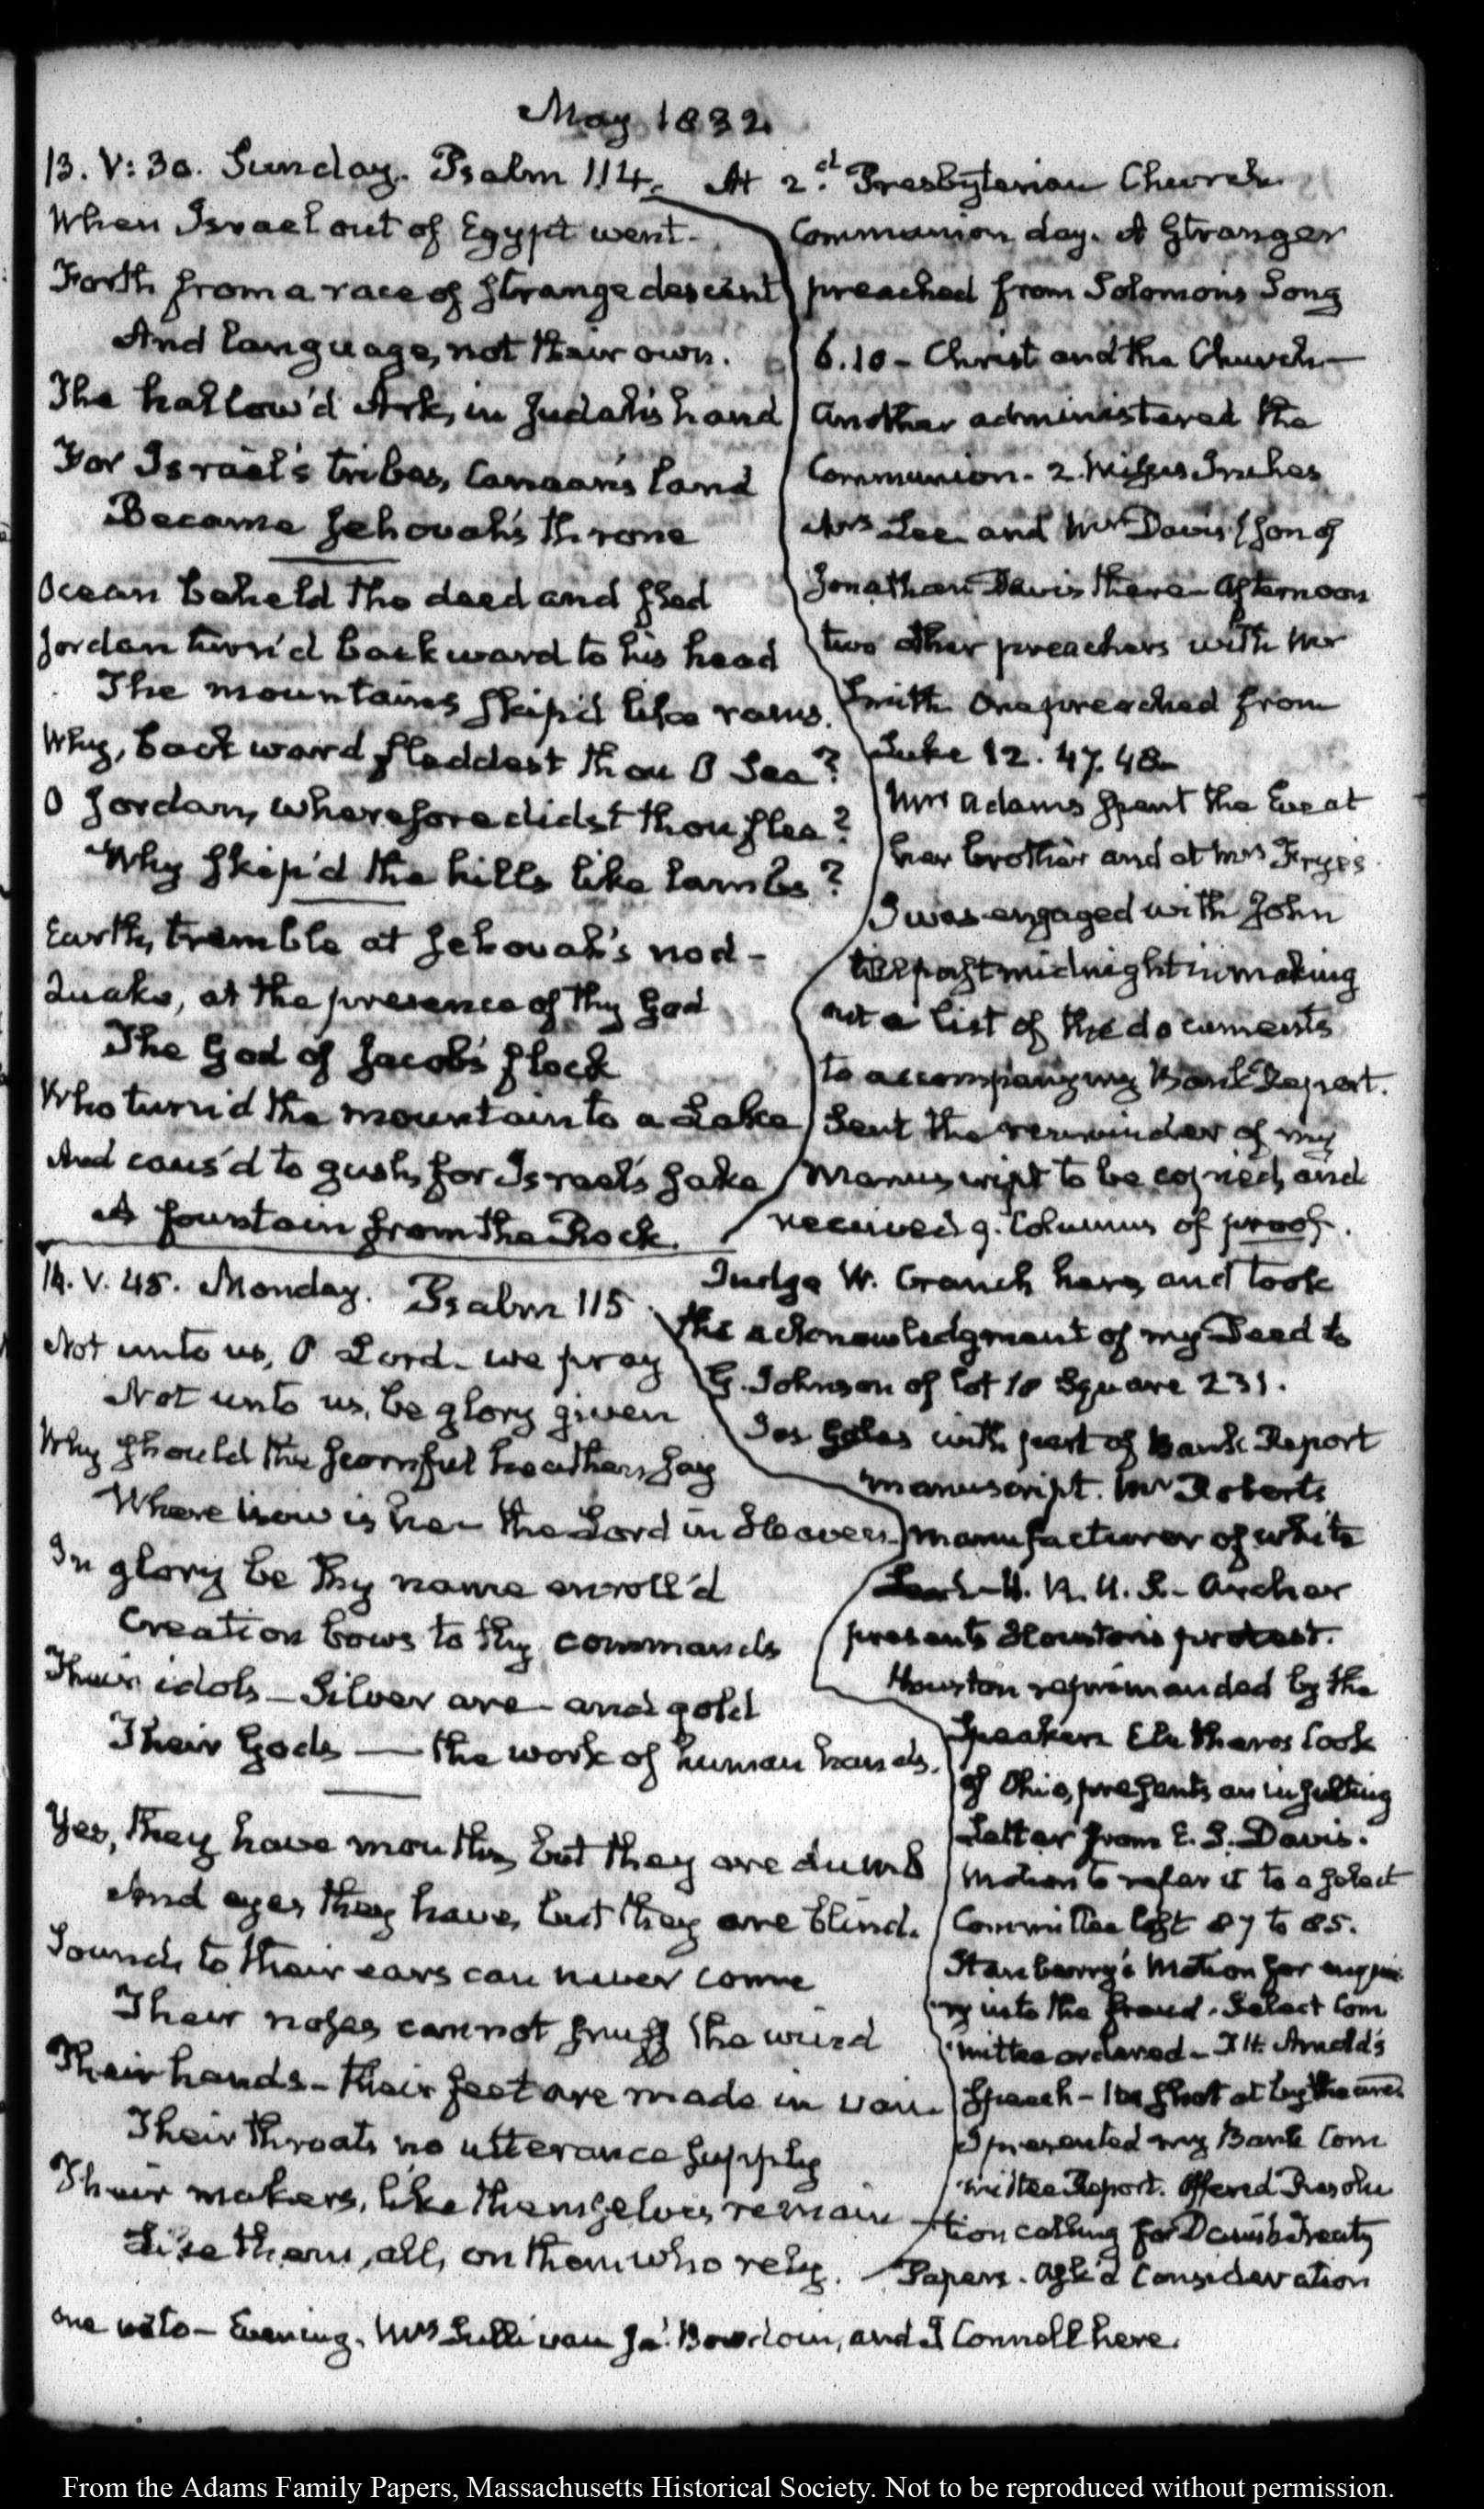 May 1832.
13. V: 30. Sunday. Psalm 114.
When Israel out of Egypt went.
Forth from a race of strange descent
And language, not their own.
The hallow'd Ark, in Judah's hand
For Israel's tribes, Canaan's land
Became Jehovah's throne
Ocean beheld the deed and fled
Jordan turn'd backward to his head
The mountains skip'd like rams.
Why, backward fleddest thou O Sea?
O Jordan, wherefore didst thou flee?
Why skip'd the hills like lambs?
Earth, tremble at Jehovah's nod -
Quake, at the presence of thy God
The God of Jacob's flock
Who turn'd the mountain to a Lake
And caus'd to gush, for Israel's sake
A fountain from the Rock.
At 2.d Presbyterian Church.
Communion day. A Stranger
preached from Solomon's Song
6.10 - Christ and the Church -
Another administered the
Communion. 2. Misses Inches
Mrs Lee and Mr Davis, son of
Jonathan Davis there - Afternoon
two other preachers with Mr
Smith. One preached from
Luke 12. 47. 48.
Mrs Adams spent the Eve at
her brother and at Mrs Frye's.
I was engaged with John
till past midnight in making
out a list of the documents
to accompanying Bank Report.
Sent the remainder of my
Manuscript to be copied, and
received 9. Columns of proof.
14. V. 45. Monday. Psalm 115.
Not unto us, O Lord - we pray
Not unto us, be glory given
Why should the scornful heathens say
Where now is he - the Lord in Heaven.
In glory be thy name enroll'd
Creation bows to thy commands
Their idols - Silver are - and gold
Their Gods — the work of human hands.
Yes, they have mouths, but they are dumb
And eyes they have, but they are blind.
Sounds to their ears can never come
Their noses cannot snuff the wind
Their hands - their feet are made in vain.
Their throats no utterance supply
Their makers, like themselves remain
Like them, all, on them who rely.
Judge W. Cranch here, and took
the acknowledgment of my Deed to
G. Johnson of lot 18 Square 231.
Jos Gales with part of Bank Report
manuscript. Mr Roberts
manufacturer of white
Lead - H. R. U. S. - Archer
presents Houston's protest.
Houston reprimanded by the
Speaker. Eleutheros Cook
of Ohio, presents an insulting
Letter from E. S. Davis.
Motion to refer it to a select
Committee lost 87 to 85.
Stanberry's Motion for enquir
ry into the fraud. Select Com
mittee ordered - T. H. Arnold's
Speech - shot at by
I presented my Bank Com
mittee Report. Offered Resolu
tion calling for Danish Treaty
Papers. Ask'd Consideration
one - Evening. Mrs Sullivan Ja.s Bowdoin, and J Connell here.
From the Adams Family Papers, Massachusetts Historical Society. Not to be reproduced without permission.